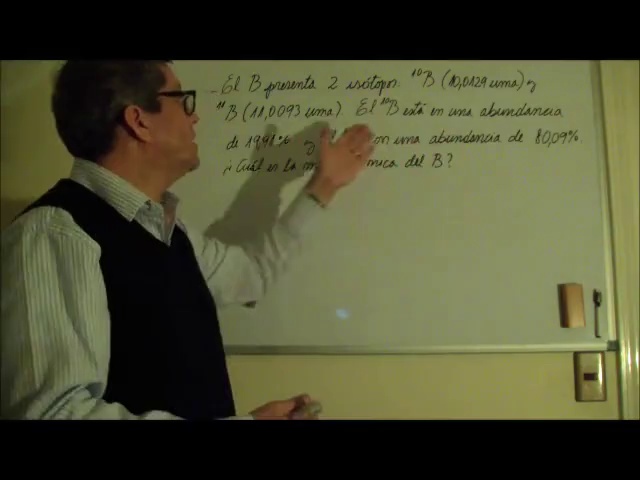 El B presenta 2 isótopos. ¹⁰B (10,0129 uma) y
¹¹B (11,0093 uma). El ¹⁰B está en una abundancia
de 19,91% y con una abundancia de 80,09%.
¿Cuál es la del B?